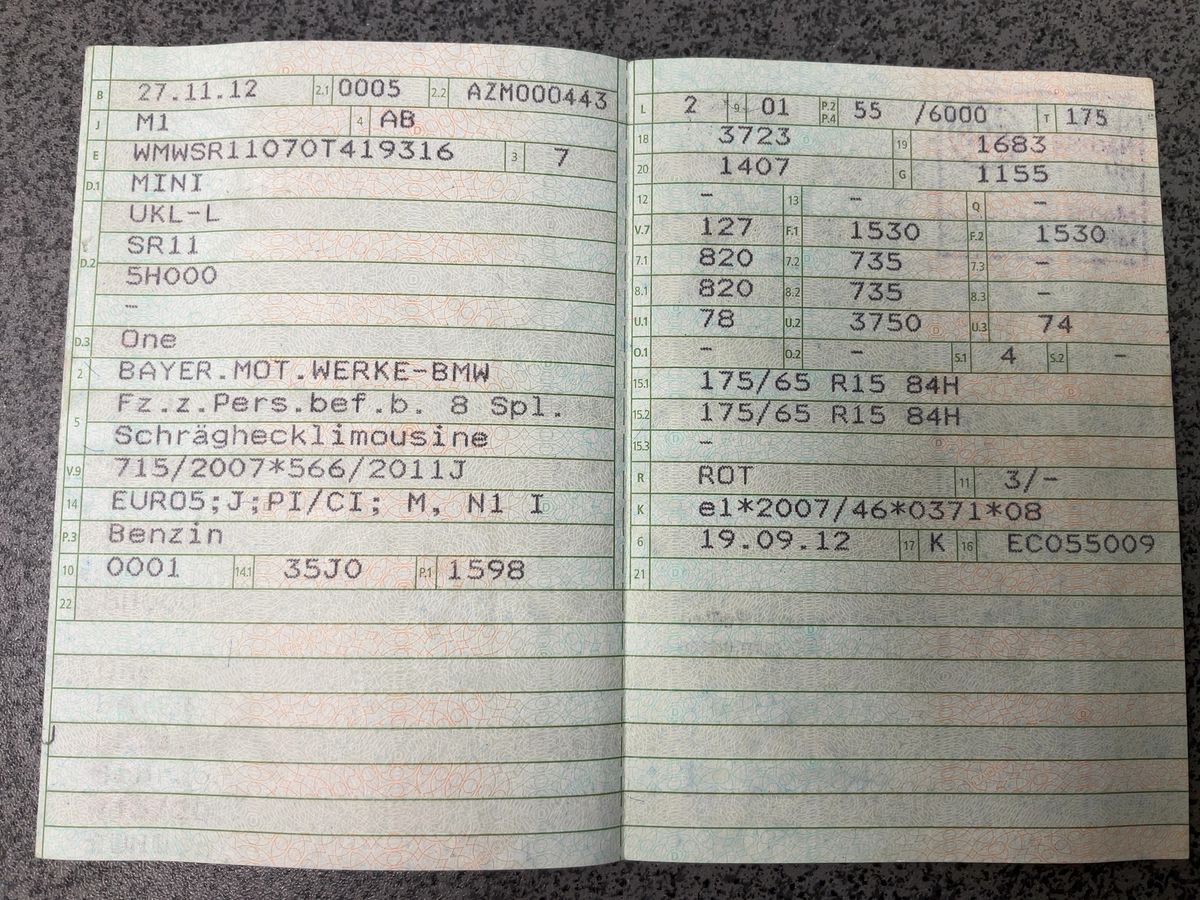 B 27.11.12 2.1 0005 2.2 AZM000443
J M1 4 AB
E WMWSR11070T419316 3 7
D.1 MINI
UKL-L
D.2 SR11
5H000
-
D.3 One
2 BAYER.MOT.WERKE-BMW
5 Fz.z.Pers.bef.b. 8 Spl.
Schräghecklimousine
V.9 715/2007*566/2011J
14 EURO5;J;PI/CI; M, N1 I
P.3 Benzin
10 0001 14.1 35J0 P.1 1598
22
L 2 9 01 P.2 P.4 55 /6000 T 175
18 3723 19 1683
20 1407 G 1155
12 - 13 - Q -
V.7 127 F.1 1530 F.2 1530
7.1 820 7.2 735 7.3 -
8.1 820 8.2 735 8.3 -
U.1 78 U.2 3750 U.3 74
O.1 - O.2 - S.1 4 S.2 -
15.1 175/65 R15 84H
15.2 175/65 R15 84H
15.3 -
R ROT 11 3/-
K e1*2007/46*0371*08
6 19.09.12 17 K 16 EC055009
21